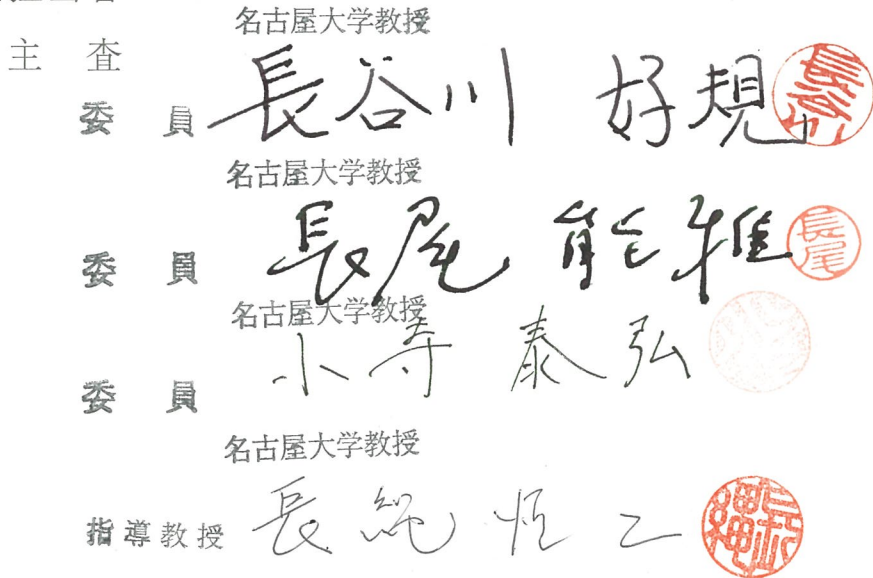 名古屋大学教授
主 査
委 員 長谷川 好規 長谷川
名古屋大学教授
委 員 長尾 能雅 長尾
名古屋大学教授
委 員 小寺 泰弘
名古屋大学教授
指導教授 長縄 慎二 長縄